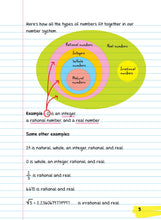 Here's how all the types of numbers fit together in our
number system.
Rational numbers
Real numbers
Integers
Whole
numbers
Natural
numbers
Irrational
numbers
Example is an integer,
a rational number, and a real number.
Some other examples:
is natural, whole, an integer, rational, and real.
0 is whole, an integer, rational, and real.
is rational and real.
6.675 is rational and real.
√5 = 2.2360679774997... is irrational and real.
5